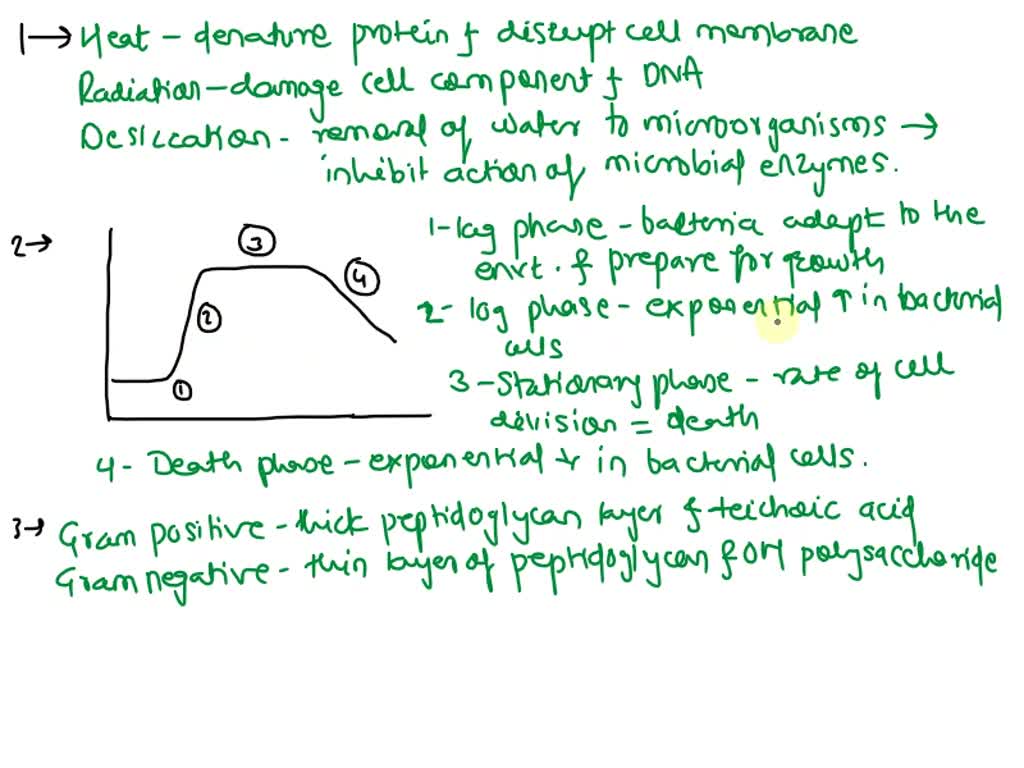 1→ Heat - denature protein & disrupt cell membrane
Radiation - damage cell component & DNA
Desiccation - removal of water to microorganisms →
inhibit action of microbial enzymes.
2→
3
4
2
1
1- lag phase - bacteria adapt to the
envt. & prepare for growth
2- log phase - exponential ↑ in bacterial
cells
3 - Stationary phase - rate of cell
division = death
4 - Death phase - exponential ↓ in bacterial cells.
3→ Gram positive - thick peptidoglycan layer & teichoic acid
Gram negative - thin layer of peptidoglycan & polysaccharide